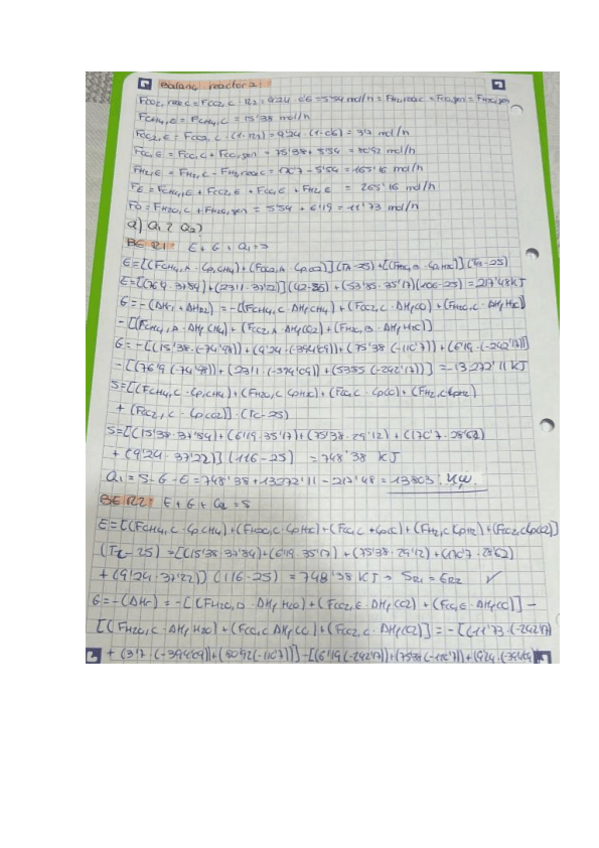 Balanç reactor 2:
FCO2, reac = FCO2,C · R2 = 9'24 · 0'6 = 5'54 mol/h = FH2,reac = FCO,gen = FH2O,gen
FCH4,E = FCH4,C = 15'38 mol/h
FCO2,E = FCO2,C · (1-R2) = 9'24 · (1-0'6) = 3'7 mol/h
FCO,E = FCO,C + FCO,gen = 75'38 + 5'54 = 80'92 mol/h
FH2,E = FH2,C - FH2,reac = 170'7 - 5'54 = 165'16 mol/h
FE = FCH4,E + FCO2,E + FCO,E + FH2,E = 265'16 mol/h
FD = FH2O,C + FH2O,gen = 5'54 + 6'19 = 11'73 mol/h
a) Q1 i Q2?
BE R1: E + G + Q1 = S
E = [(FCH4,A · CpCH4) + (FCO2,A · CpCO2)] (TA-25) + [(FH2O,B · CpH2O)] (TB-25)
E = [(76'9 · 37'54) + (23'11 · 37'22)] (42-25) + (53'85 · 35'17) (106-25) = 217'48 KJ
G = -(ΔHr1 + ΔHr2) = -[(FCH4,C · ΔHf CH4) + (FCO2,C · ΔHf CO2) + (FH2O,C · ΔHf H2O)]
- [(FCH4,A · ΔHf CH4) + (FCO2,A · ΔHf CO2) + (FH2O,B · ΔHf H2O)]
G = -[(15'38 · (-74'98)) + (9'24 · (-394'09)) + (75'38 · (-110'7)) + (6'19 · (-242'17))]
- [(76'9 (-74'98)) + (23'11 · (-394'09)) + (53'85 (-242'17))] = -13272'11 KJ
S = [(FCH4,C · CpCH4) + (FH2O,C · CpH2O) + (FCO,C · CpCO) + (FH2,C · CpH2)
+ (FCO2,C · CpCO2)] · (TC-25)
S = [(15'38 · 37'54) + (6'19 · 35'17) + (75'38 · 29'12) + (170'7 · 28'62)
+ (9'24 · 37'22)] (116-25) = 748'38 KJ
Q1 = S - G - E = 748'38 + 13272'11 - 217'48 = 13803
BE R2: E + G + Q2 = S
E = [(FCH4,C · CpCH4) + (FH2O,C · CpH2O) + (FCO,C · CpCO) + (FH2,C · CpH2) + (FCO2,C · CpCO2)]
(TC-25) = [(15'38 · 37'54) + (6'19 · 35'17) + (75'38 · 29'12) + (170'7 · 28'62)
+ (9'24 · 37'22)] (116-25) = 748'38 KJ → SR1 = ER2 ✓
G = -(ΔHr) = -[(FH2O,D · ΔHf H2O) + (FCO2,E · ΔHf CO2) + (FCO,E · ΔHf CO)] -
[(FH2O,C · ΔHf H2O) + (FCO,C ΔHf CO) + (FCO2,C · ΔHf CO2)] = -[(11'73 · (-242'17)
+ (3'7 · (-394'09)) + (80'92 (-110'7))] - [(6'19 (-242'17)) + (75'38 (-110'7)) + (9'24 · (-394'09)